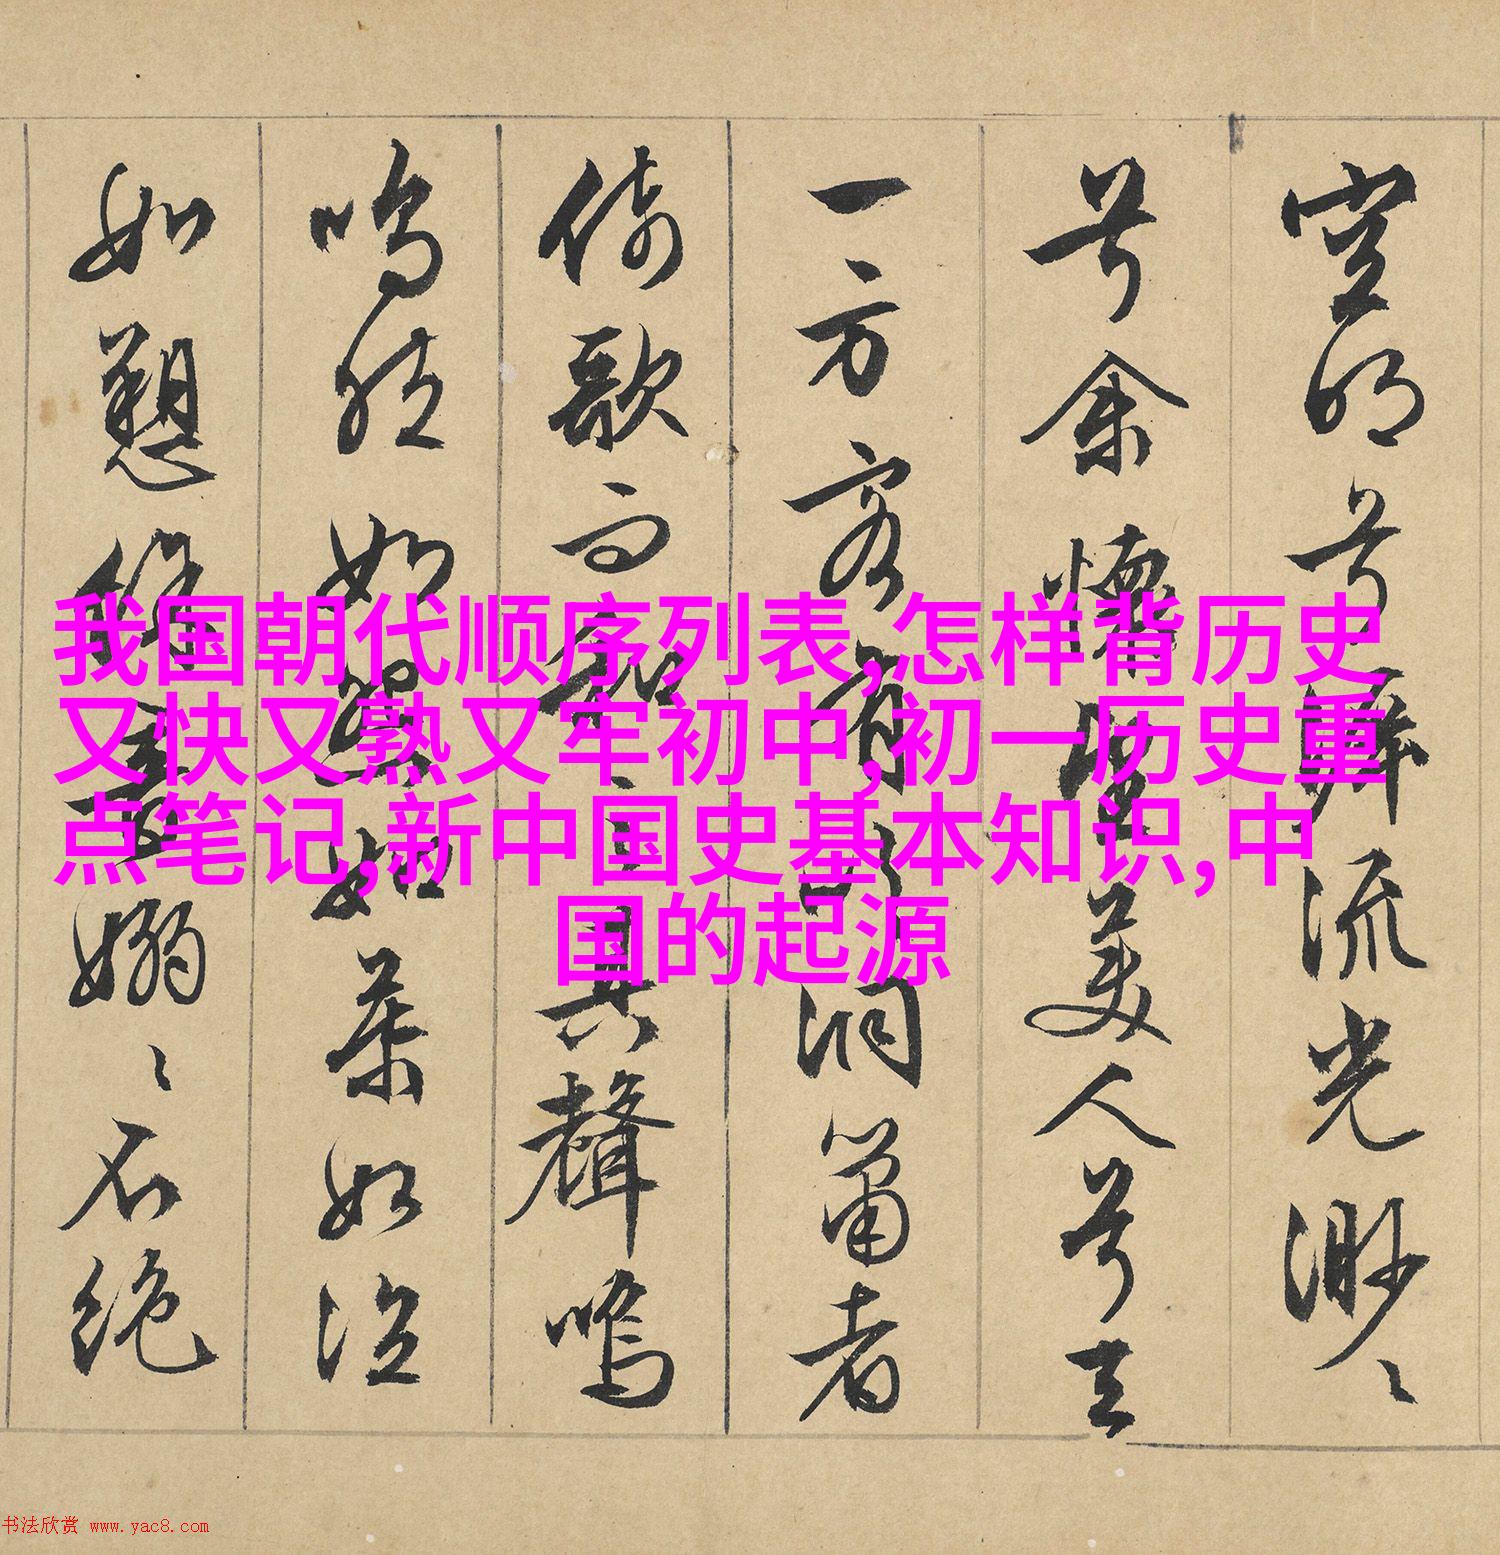 我国朝代顺序列表,怎样背历史
又快又熟又牢初中,初一历史重
点笔记,新中国史基本知识,中
国的起源
空明兮流光渺〻
兮余懷望美人兮天
一方客有吹洞簫者
倚歌而和之其聲嗚
嗚然如怨如慕如泣
如愬餘音嫋〻不絕
书法欣赏 www.yac8.com